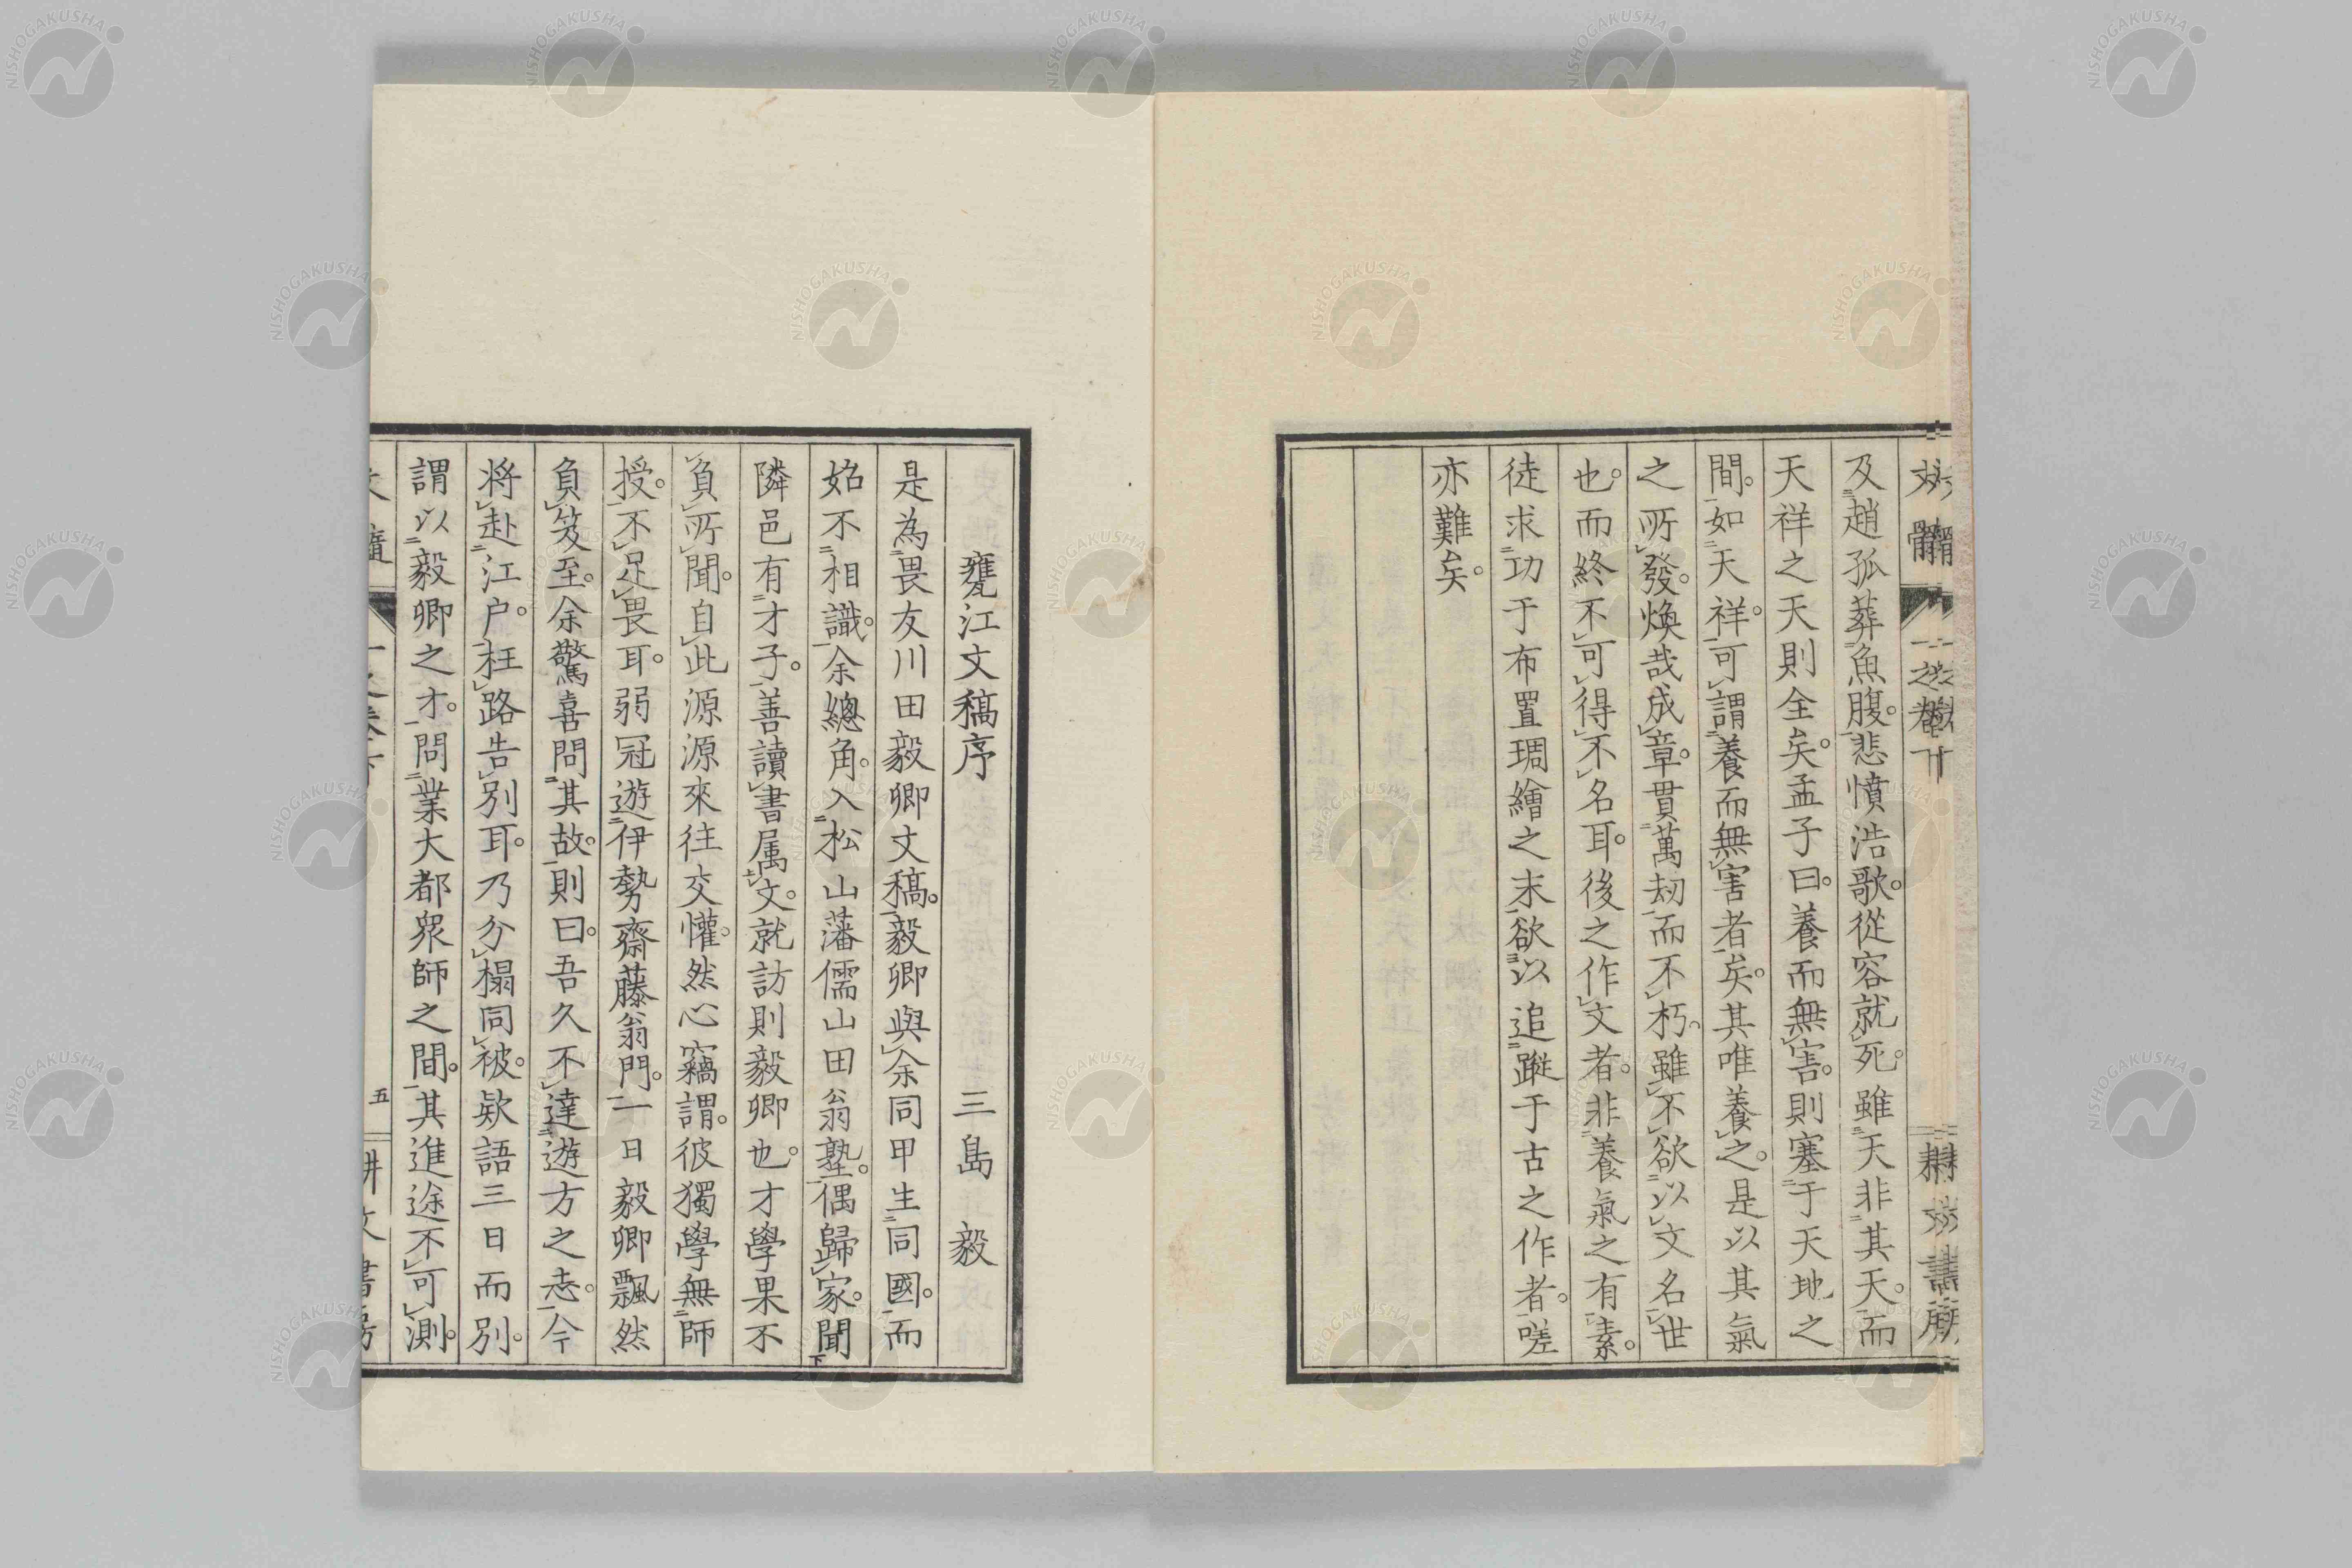 及趙孤葬魚腹。悲憤浩歌。從容就死。雖天非其天。而
天祥之天則全矣。孟子曰。養而無害。則塞于天地之
間。如天祥。可謂養而無害者矣。其唯養之。是以其氣
之所發。煥哉成章。貫萬劫而不朽。雖不欲以文名世
也。而終不可得不名耳。後之作文者。非養氣之有素。
徒求功于布置琱繪之末。欲以追蹤于古之作者。嗟
亦難矣。
甕江文稿序 三島 毅
是為畏友川田毅卿文稿。毅卿與余同甲生同國。而
始不相識。余總角。入松山藩儒山田翁塾。偶歸家。聞
隣邑有才子。善讀書属文。就訪則毅卿也。才學果不
負所聞。自此源源來往交懽。然心竊謂。彼獨學無師
授。不足畏耳。弱冠遊伊勢齋藤翁門。一日毅卿飄然
負笈至。余驚喜問其故。則曰。吾久不達遊方之志。今
将赴江户。枉路告別耳。乃分榻同被。欵語三日而別。
謂以毅卿之才。問業大都衆師之間。其進途不可測。
五
NISHOGAKUSHA